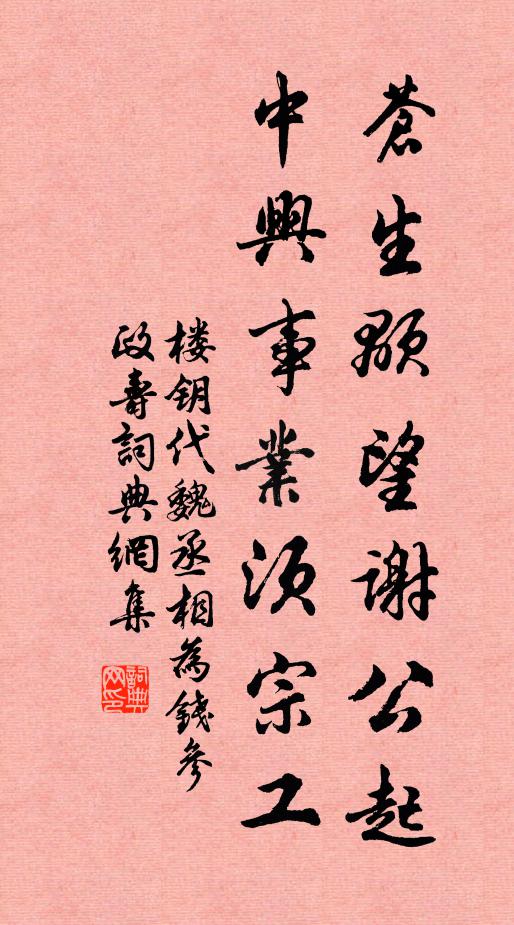 蒼生顒望謝公起
中興事業須宗工
楼钥代魏丞相為錢參
政壽詞典網集
詞典網印